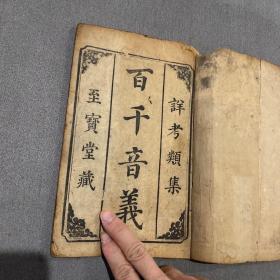 詳考類集
百千音義
至寶堂藏